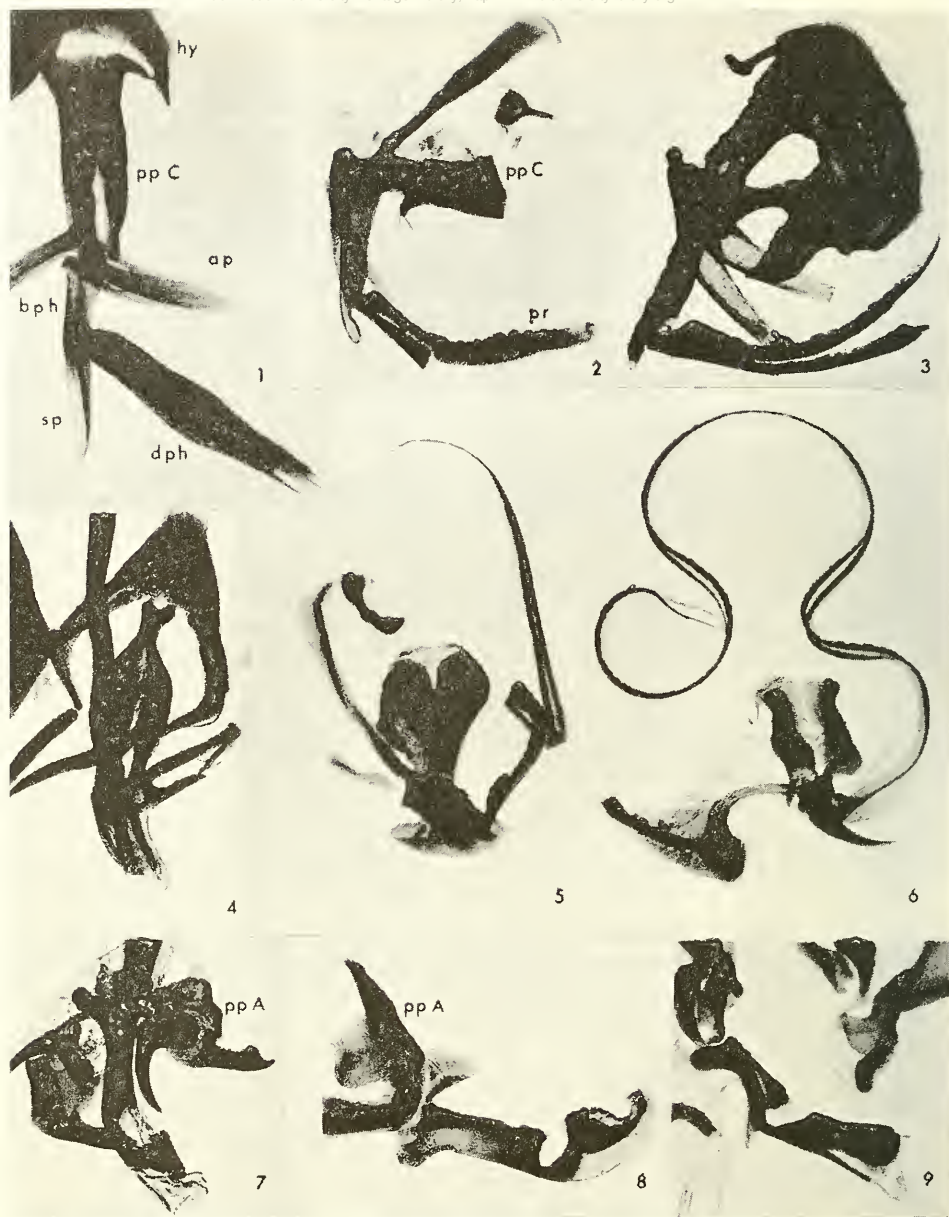 hy
pp C
ap
bph
1
sp
dph
pp C
pr
2
3
4
5
6
pp A
7
pp A
8
9